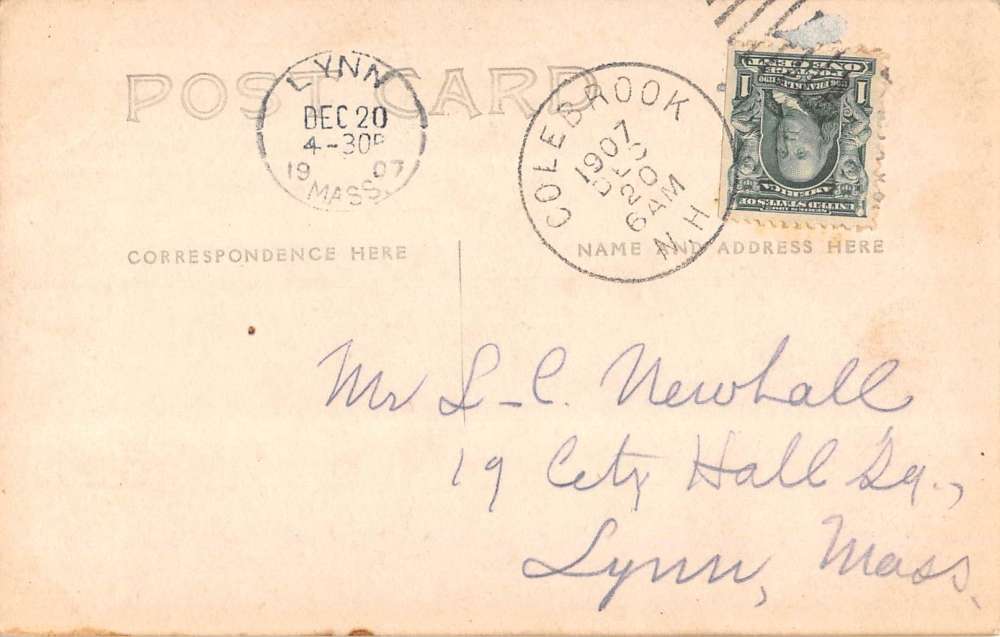 POST CARD
LYNN
DEC 20
4-30P
19 07
MASS.
COLEBROOK
1907
DEC
20
6AM
N H
ONE CENT
POSTAGE
FRANKLIN
1 1
UNITED STATES OF
AMERICA
CORRESPONDENCE HERE
NAME AND ADDRESS HERE
Mr L-C. Newhall
19 City Hall Sq.,
Lynn, Mass.